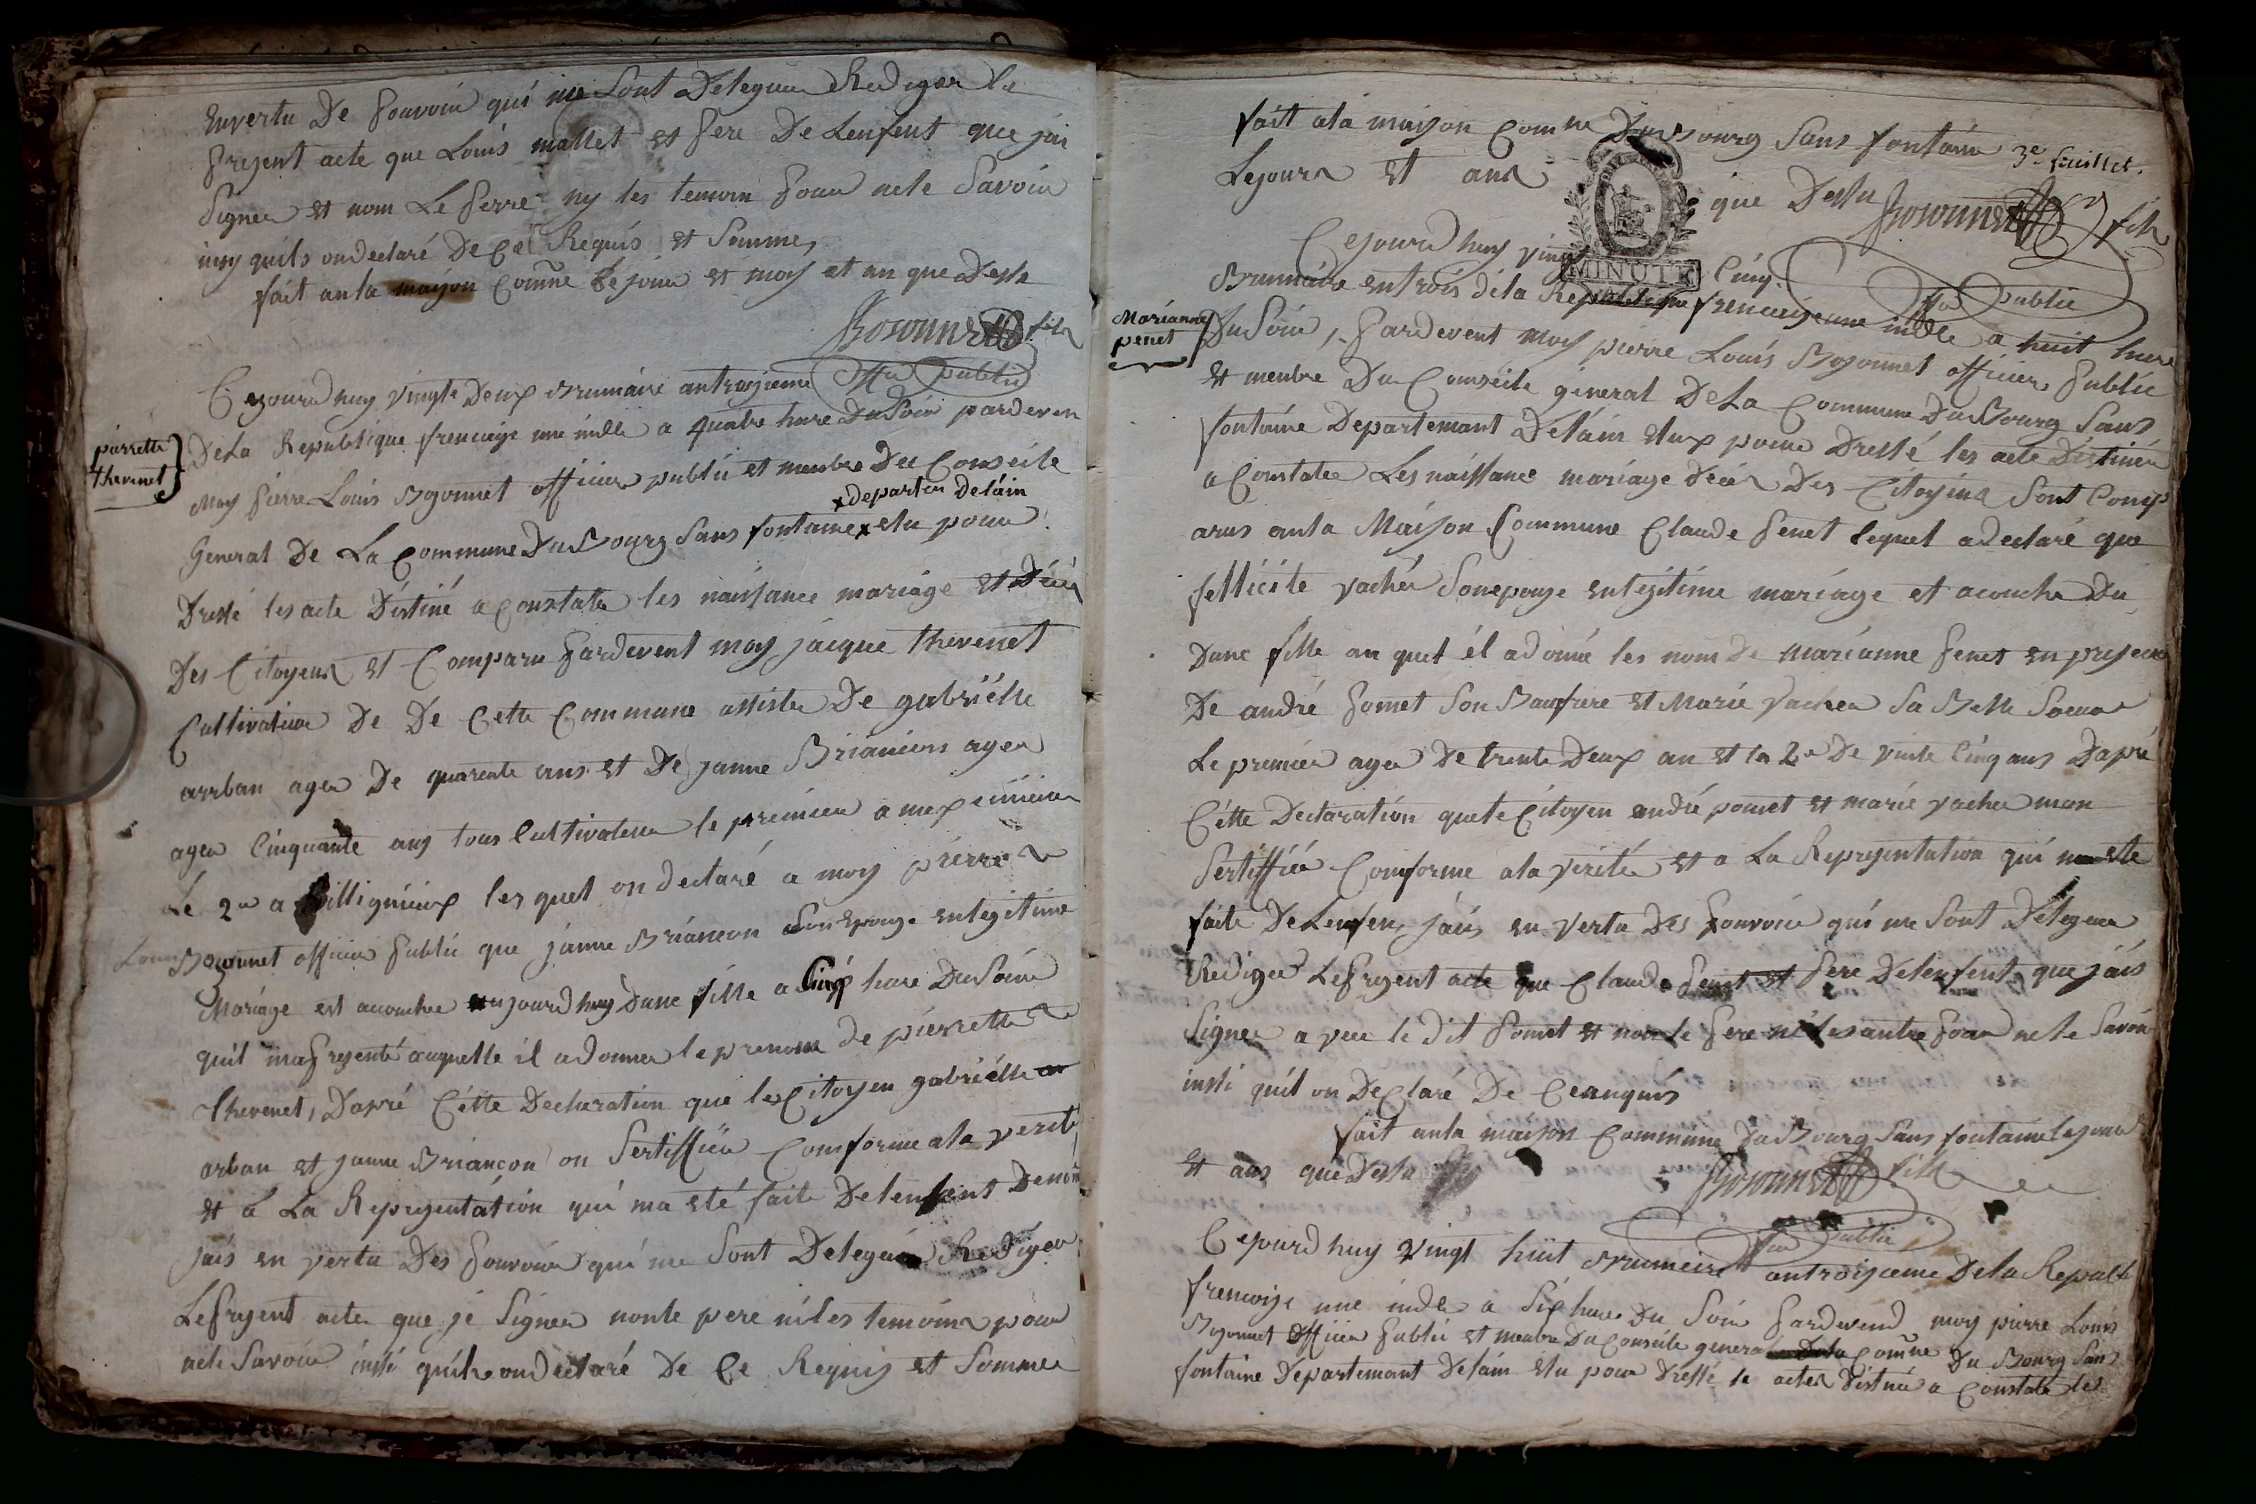 Envertu De Pouvoir qui me Sont Deleguer Rediger le
Present acte que Louis mallet et Pere De Lenfent que jai
Signer et nom Le Perre ny les temoin Pour nele Savoir
insy quils ondeclaré De Ce Requis et Somme,
fait anla maison Comne Le jour et moy et an que Desu
Bosonnet fils
offi public
Cejourdhuy vingte Deux Brumaire antroisieme
pierrette
thevenet
DeLa Republique frencaise une indle a quatre hure DuSoir pardeven
Moy Pierre Louis Bozonnet officier public et menbre Du Conseile
x departm Delain
General De La Commune DuBourg Sans fontaine x elu pour
Dressé les acte Destiné a Constater les naissance mariage et Décés
Des Citoyens et Comparu Pardevent moy jacque thevenet
Cultivateur De De Cette Commune assister De gabriélle
arban ager De quarente ans et De janne Briancons ager
ager Cinquante ans tous Cultivateur le premier a mexemieux
Le 2e a Pillignieux lesquel on declaré a moy pierre
Louis Bozonnet officier Public que janne Briancon Son Epouze enlegitime
Mariage est acouchee aujourdhuy Dune fille a Cinq hure DuSoir
quil ma Presenté auquelle il adonner le prenom de pierrette
thevenet, Dapré Cétte Declaration que le Citoyen gabriélle
arban et janne Briancon on Sertiffier Comforme ala verité
et a La Represéntation qui ma eté faite Delenfant Denomé
jais en vertu Des Pouvoir qui me Sont Deleguer Rediger
LePresent acte que je Signer nonle pere niles temoins pour
nele Savoir insi quils ondeclaré De Ce Requis et Sommer
fait ala maison Comne DuBourg Sans fontaine 3e fuillet.
Lejours et ans que Desu
MINUTE
Bosonnet fils
offi public
Cejourdhuy vingt Cinq
Brumaire entrois dela Republique frencaizeune indle a huit hure
Marianne
penet
DuSoir, Pardevent Moy pierre Louis Bozonnet officier Public
et menbre Du Conseile géneral DeLa Commune DuBourg Sans
fontaine Departemant Delain elux pour Dressé les acte Déstiner
a Constater Les naissance mariage décés Des Citoyens Sont Comp
arus anla Maison Commune Claude Penet lequel a declaré que
fellicite vacher Sonepouze enlegitime mariage et acoucher Du
Dune fille au quel él adonné les nom De Mariànne Penet enpresence
De andré Pomet Son Baufrere et Marie vacher Sa Belle Soeur
Le premier ager De trente Deux an et la 2e De vinte Cinq ans Dapré
Cétte Declaration quele Citoyen andré pomet et marie vacher mon
Sertiffier Comforme ala vérité et a La Represéntation qui ma ete
faite DeLenfen jais en vertu Des Pouvoir qui me Sont Déleguer
Rediger LePresent acte que Claude Penet et Pere Delenfent que jais
Signer a vec le dit Pomet et non le Pere ni les autre Pour nele Savoir
insi quil on Declaré De Ceanquis
fait anla maison Commune DuBourg Sans fontaine lejour
et ans que Desu
Bosonnet fils
offi public
Cejourdhuy vingt huit Brumeire antroizieme DeLa Republ
frencoize une indle a Sip hure Du Soir Pardevend moy pierre Louis
Bozonnet officier Public et menbre DuConseile general Dela Comne Du Bourg Sans
fontaine Departemant Delain elu pour Dressé le actes distiner a Constater les